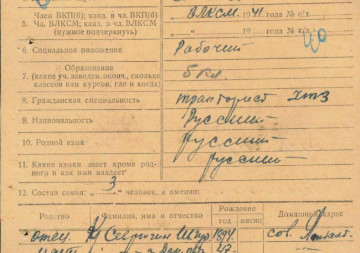 Член ВКП(б); канд. в чл. ВКП(б)
5. Член ВЛКСМ; канд. в чл. ВЛКСМ ВЛКСМ. 41 года № п/л.
(нужное подчеркнуть) года № к/л
6. Социальное положение Рабочий
7. Образование 5 кл.
(какое уч. заведен. окончил, сколько
классов или курсов, где и когда)
8. Гражданская специальность тракторист ХТЗ
9. Национальность Русский
10. Родной язык Русский
11. Какие языки знает кроме род- русский
ного и как ими владеет
12. Состав семьи: „ 3 “ человек, а именно:
Родство Фамилия, имя и отчество Рождение Домашний адрес
год месяц
отец 1894 сов.
мать